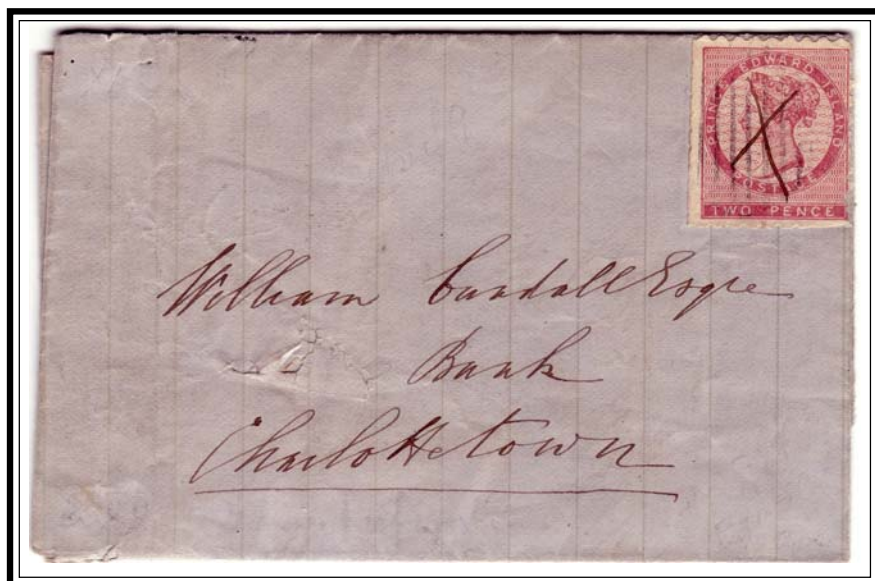 PRINCE EDWARD ISLAND
POSTAGE
TWO PENCE
William Cundall Esqre
Bank
Charlottetown